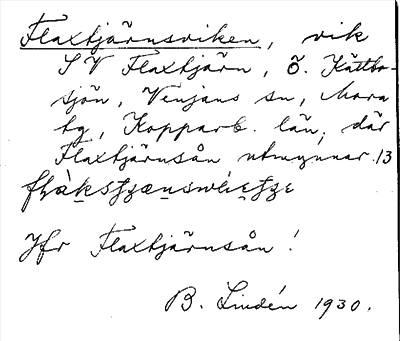 Flaxtjärnsviken, vik
SV Flaxtjärn, ö. Kättbo-
sjön, Venjans sn, Mora
tg, Kopparb. län, där
Flaxtjärnsån utmynnar. 13
Jfr Flaxtjärnsån!
B. Lindén 1930.